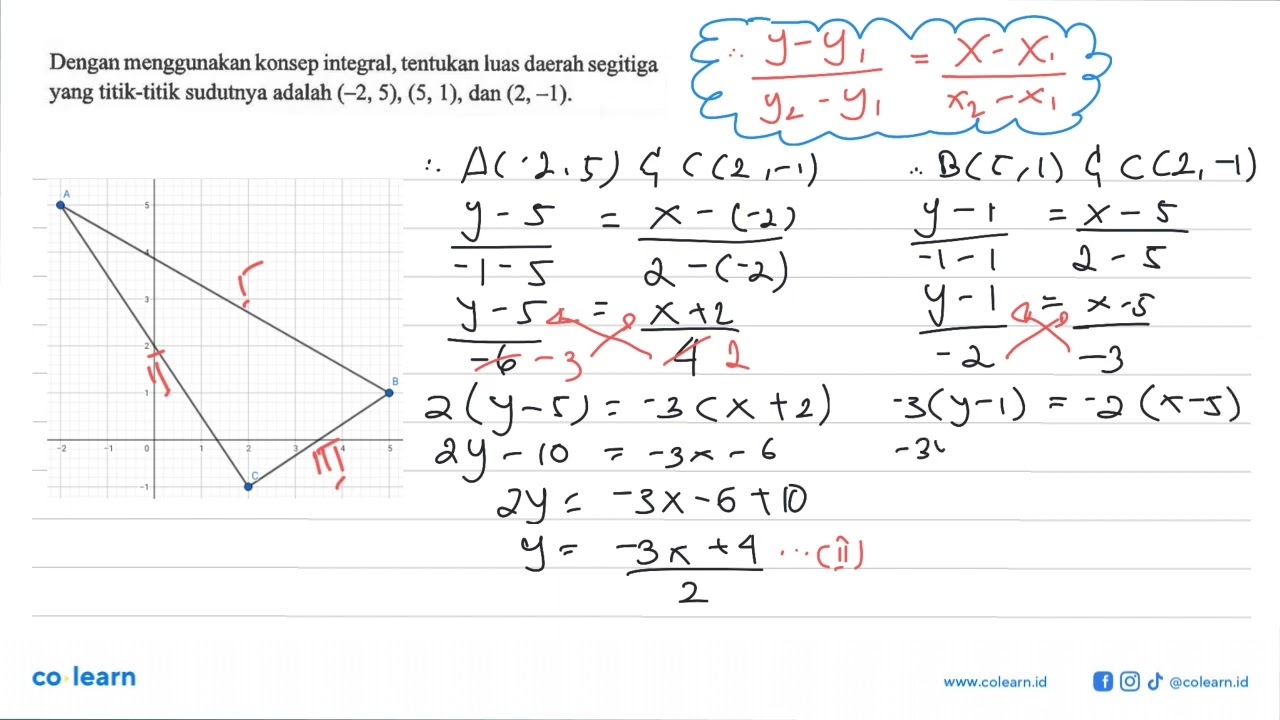 Dengan menggunakan konsep integral, tentukan luas daerah segitiga
yang titik-titik sudutnya adalah (–2, 5), (5, 1), dan (2, –1).
∴ (y - y₁)/(y₂ - y₁) = (x - x₁)/(x₂ - x₁)
∴ A(-2,5) & C(2,-1)
(y - 5)/(-1 - 5) = (x - (-2))/(2 - (-2))
(y - 5)/(-6) = (x + 2)/4
-3 2
2(y - 5) = -3(x + 2)
2y - 10 = -3x - 6
2y = -3x - 6 + 10
y = (-3x + 4)/2 ...(II)
∴ B(5,1) & C(2,-1)
(y - 1)/(-1 - 1) = (x - 5)/(2 - 5)
(y - 1)/(-2) = (x - 5)/(-3)
-3(y - 1) = -2(x - 5)
A
5
4
I
3
2
II
1
B
-2 -1 0 1 2 3 4 5
III
-1
C
co learn
www.colearn.id
@colearn.id